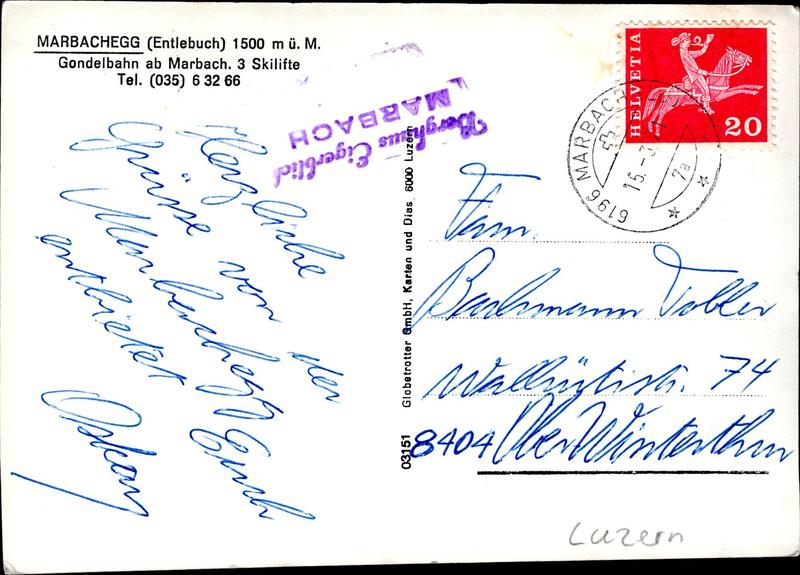 MARBACHEGG (Entlebuch) 1500 m ü. M.
Gondelbahn ab Marbach. 3 Skilifte
Tel. (035) 6 32 66
Berghaus Eigerblick
MARBACH
HELVETIA
20
6196 MARBACH
15.-3
7a
Herzliche
Grüsse von der
Marbachegg Euch
entbietet
Oskar
03151 Globetrotter GmbH, Karten und Dias 6000 Luzern
Fam.
Bachmann Tobler
74
8404 Ober Winterthur
Luzern